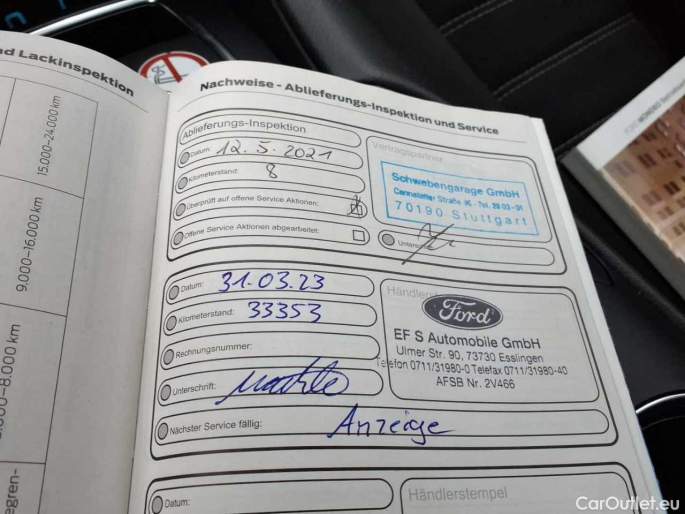 nd Lackinspektion
15.000–24.000 km
9.000–16.000 km
000–8.000 km
egren-
Nachweise - Ablieferungs-Inspektion und Service
Ablieferungs-Inspektion
Datum: 12.5.2021
Kilometerstand: 8
Überprüft auf offene Service Aktionen:
Offene Service Aktionen abgearbeitet:
Vertragspartner
Schwabengarage GmbH
Cannstatter Straße
70190 Stuttgart
Unters
Datum: 31.03.23
Kilometerstand: 33353
Rechnungsnummer:
Unterschrift:
Nächster Service fällig: Anzeige
Händlerste
Ford
EF S Automobile GmbH
Ulmer Str. 90, 73730 Esslingen
Telefon 0711/31980-0 Telefax 0711/31980-40
AFSB Nr. 2V466
Datum:
Händlerstempel
FORD MONDEO
CarOutlet.eu